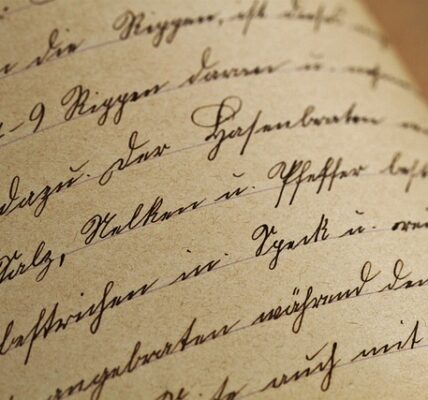 die Rippen, ist
9 Rippen daran u.
dazu. Der Hasenbraten
Salz, Nelken u. Pfeffer
bestrichen in Speck u.
angebraten während
auch mit